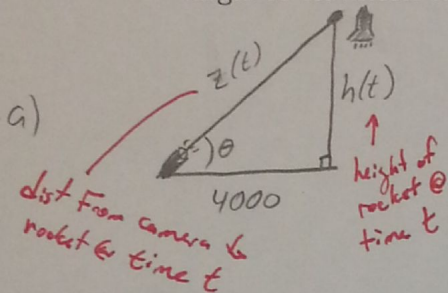 a)
z(t)
h(t)
θ
4000
dist from camera to
rocket @ time t
height of
rocket @
time t